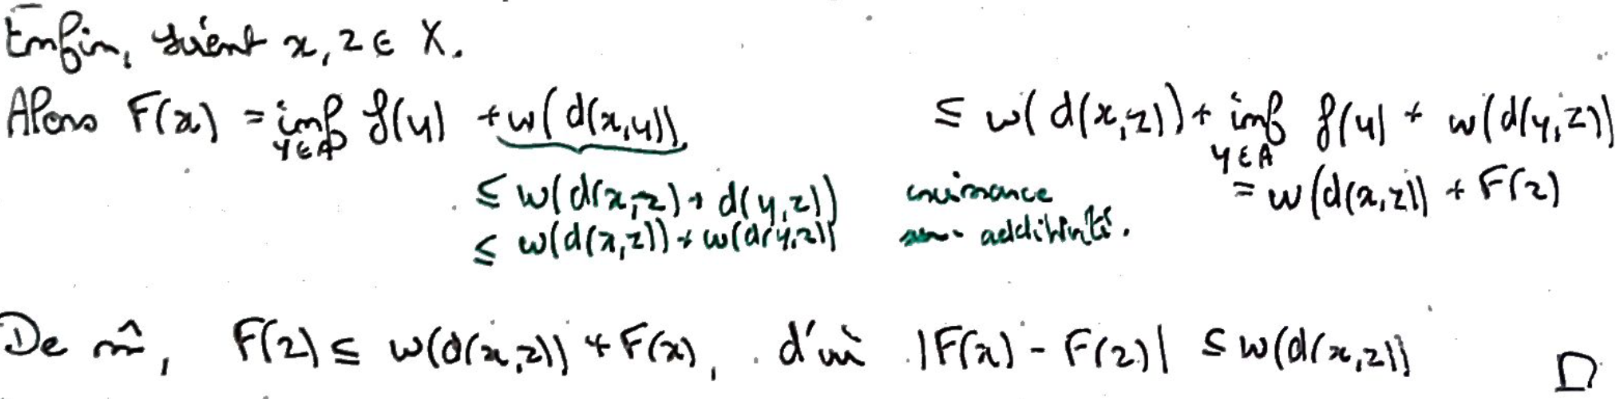 Enfin, soient x, z ∈ X.
Alors F(x) = inf_{y∈A} f(y) + w(d(x,y)) ≤ w(d(x,z)) + inf_{y∈A} f(y) + w(d(y,z))
≤ w(d(x,z) + d(y,z)) croissance = w(d(x,z)) + F(z)
≤ w(d(x,z)) + w(d(y,z)) sous-additivité.
De m̂, F(z) ≤ w(d(x,z)) + F(x), d'où |F(x) - F(z)| ≤ w(d(x,z)) □